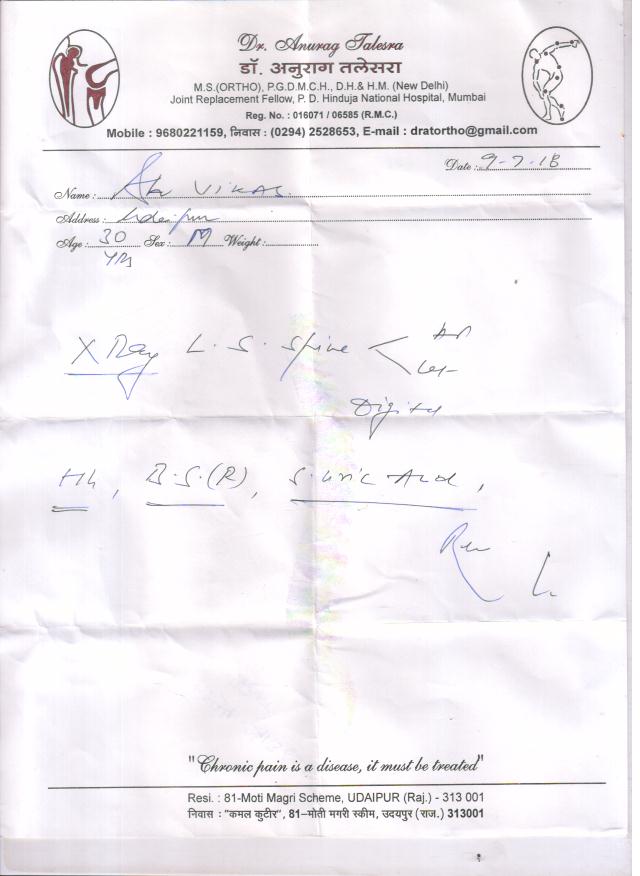 Dr. Anurag Talesra
डॉ. अनुराग तलेसरा
M.S.(ORTHO), P.G.D.M.C.H., D.H.& H.M. (New Delhi)
Joint Replacement Fellow, P. D. Hinduja National Hospital, Mumbai
Reg. No. : 016071 / 06585 (R.M.C.)
Mobile : 9680221159, निवास : (0294) 2528653, E-mail : dratortho@gmail.com
Date : 9-7-18
Name : Vikas
Address : Udaipur
Age : 30 Sex : M Weight :
Yrs
X Ray L.S. Spine < AP
Digital
Hb, B.S.(R), S. Uric Acid,
"Chronic pain is a disease, it must be treated"
Resi. : 81-Moti Magri Scheme, UDAIPUR (Raj.) - 313 001
निवास : "कमल कुटीर", 81–मोती मगरी स्कीम, उदयपुर (राज.) 313001